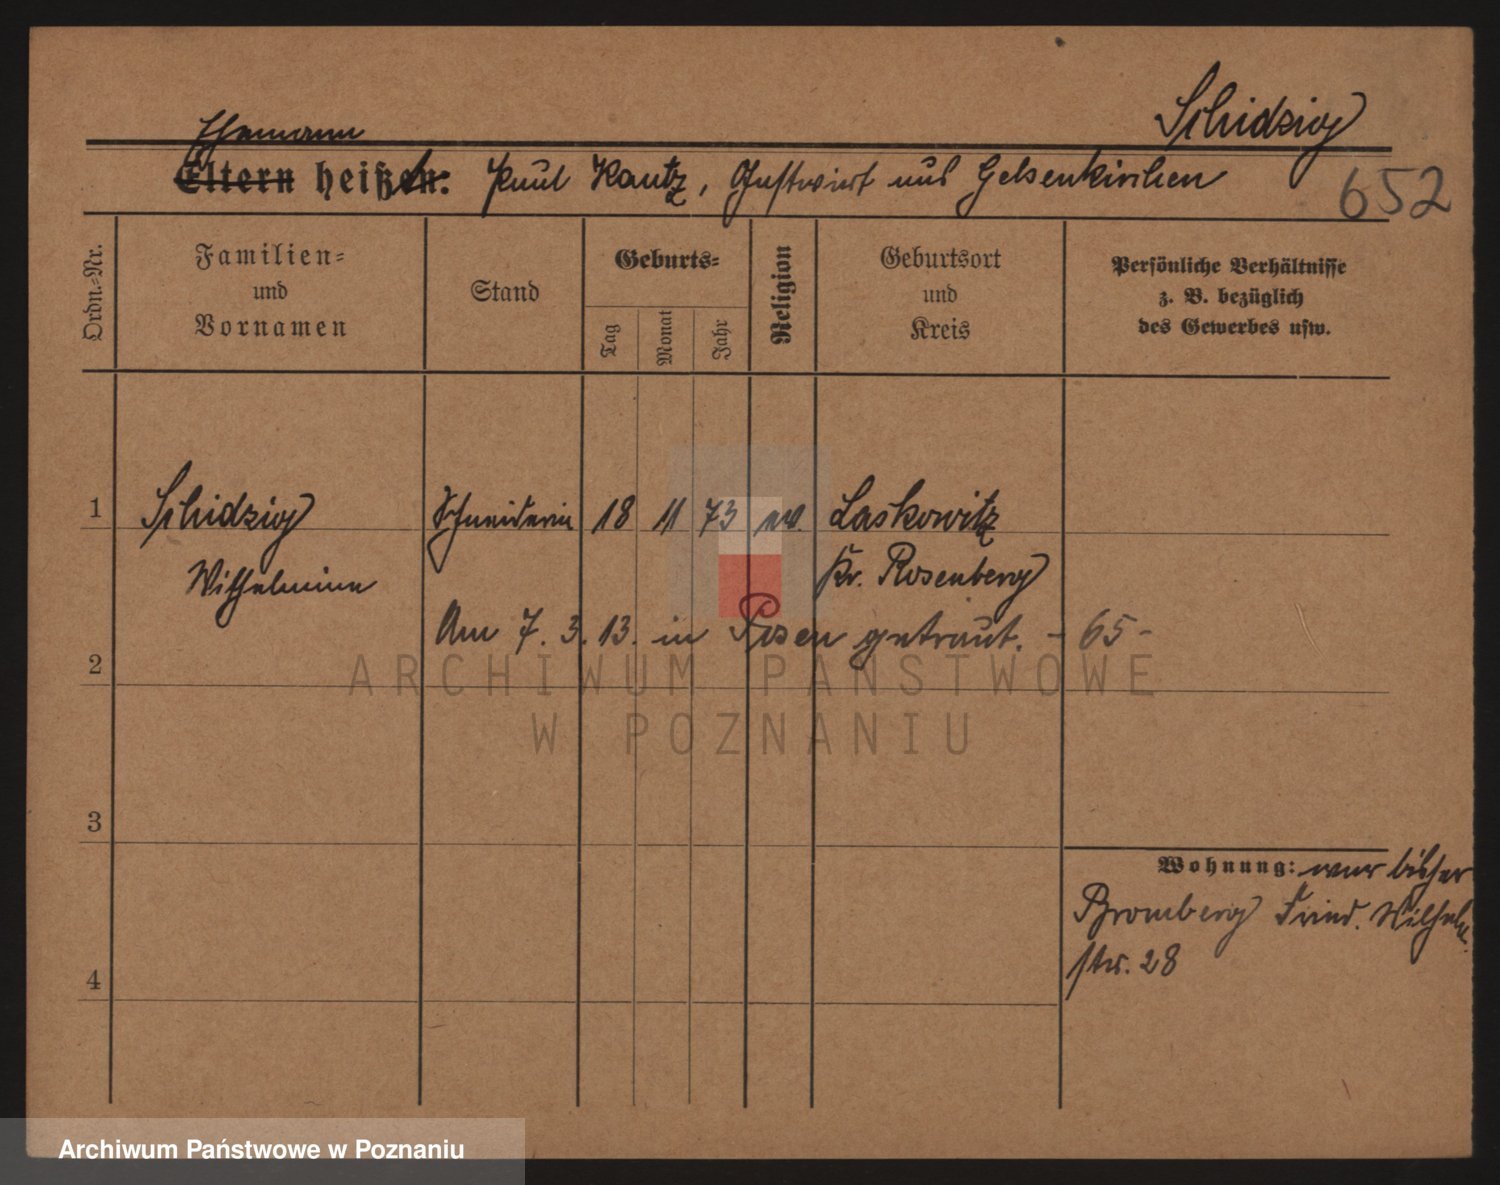 Schidzig
Ehemann
Eltern heißen: Paul Kautz, Gastwirt aus Gelsenkirchen
652
Ordn.-Nr.
Familien-
und
Vornamen
Stand
Geburts-
Tag
Monat
Jahr
Religion
Geburtsort
und
Kreis
Persönliche Verhältnisse
z. B. bezüglich
des Gewerbes usw.
1 Schidzig Schneiderin 18 11 73 ev. Laskowitz
Wilhelmine Kr. Rosenberg
Am 7. 3. 13. in Posen getraut. - 65 -
2
ARCHIWUM PAŃSTWOWE
W POZNANIU
3
Wohnung: war bisher
Bromberg Fried. Wilhelm
str. 28
4
Archiwum Państwowe w Poznaniu